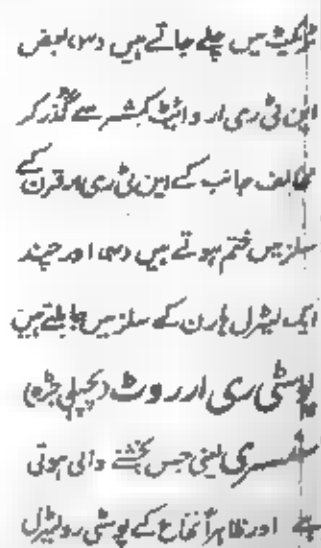 ٹریکٹ میں چلے جاتے ہیں (۳) بعض
این ٹی ری ار وائیٹ کمشر سے گذر کر
مخالف جانب کے این ٹی ری ار قرن کے
سلز میں ختم ہوتے ہیں (۴) اور چند
ایک لیٹرل ہارن کے سلز میں جا ملتے ہین
پوسٹی ری ار روٹ (پچھلی جڑ)
سنسری یعنی حس بخشنے والی ہوتی
ہے اور ظاہراً نخاع کے پوسٹی رو لیٹرل